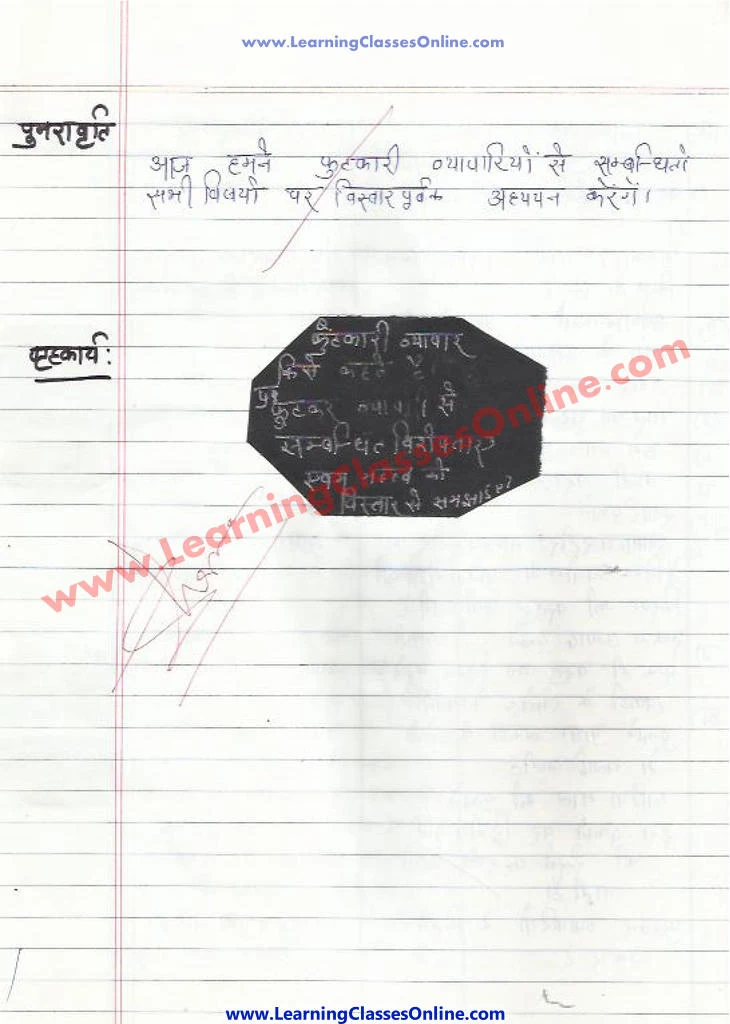 www.LearningClassesOnline.com
पुनरावृति
आज हमने फुटकारी व्यापारियों से सम्बन्धितो
सभी विषयो पर विस्तार पूर्वक अध्ययन करेंगें।
गृहकार्य:
फुटकारी व्यापार
किसे कहते है
फुटकर व्यापारी से
सम्बन्धित विशेषताए
एवम महत्व को
विस्तार से समझाइए?
www.LearningClassesOnline.com
www.LearningClassesOnline.com